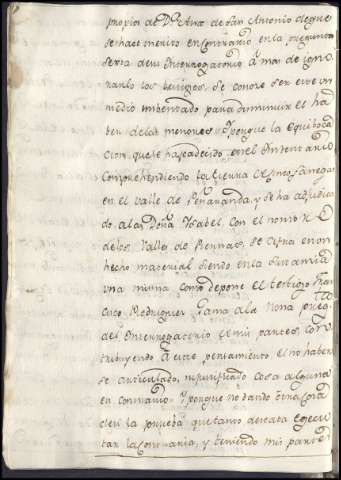 propios de Dª Ana de San Antonio de que
se hace merito en contrario en la pregunta
sexta de su Interrogatorio à mas de igno
rarlo los testigos, se conoce ser este un
medio imbentado para disminuir el ha
ber de las menores. Y porque la equiboca
cion, que se ha padecido en el Inventario
comprehendiendo la tierra de fanegas
en el valle de Peñaranda, y se ha adjudica
do a la Doña Isabel con el nombre
de los Valles de Piernas, se cifra en un
hecho material siendo en la
una misma como depone el testigo
Coco Rodriguez Gama à la nona preg
del Interrogatorio de mis partes, con
tribuyendo à este pensamiento el no haber
se articulado, ni purificado cosa alguna
en contrario. Y porque no dando otra cosa
de si la prueba que tanto deseaba egecu
tar la contraria, y teniendo mis partes